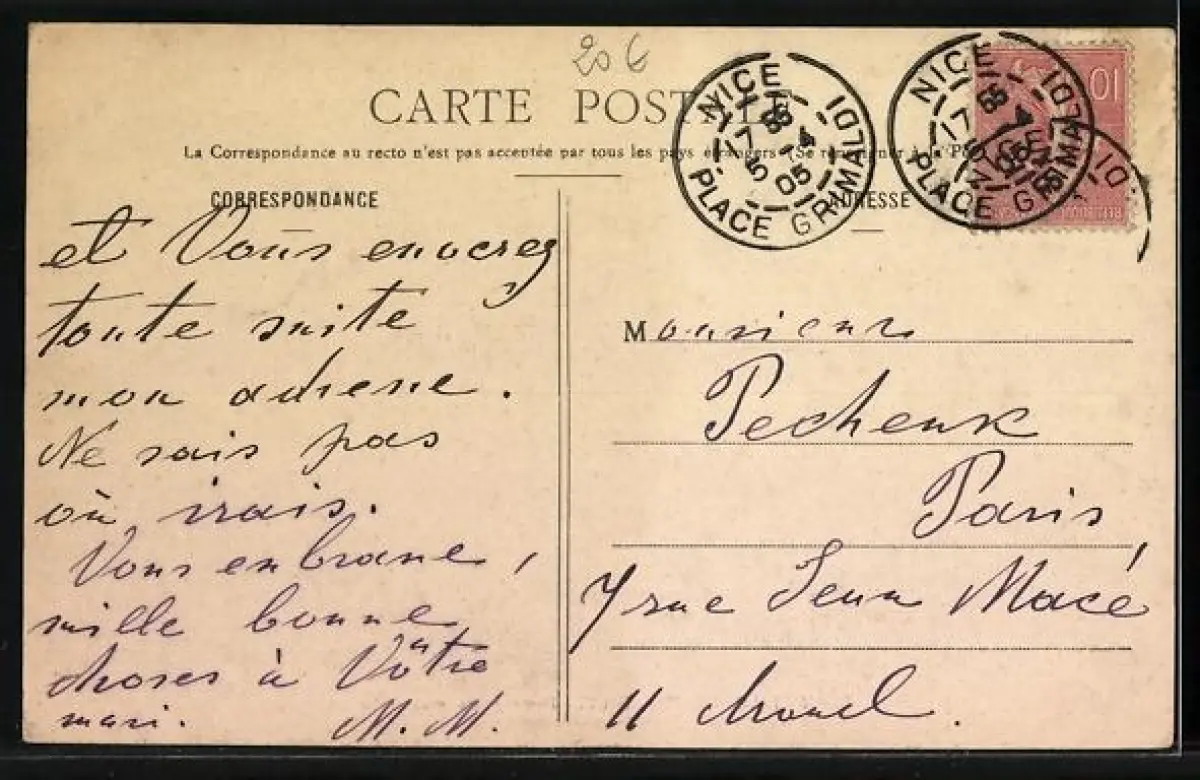 20 €
CARTE POSTALE
La Correspondance au recto n'est pas acceptée par tous les pays étrangers (Se renseigner à la P
CORRESPONDANCE
ADRESSE
NICE
17
5
05
PLACE GRIMALDI
NICE
17
5
05
PLACE GRIMALDI
10
et Vous enverez
toute suite
mon adresse.
Ne sais pas
où irais.
Vous enbrasse,
mille bonne
choses à Vôtre
mari. M. M.
Monsieur
Pechenk
Paris
7 rue Jean Macé
11